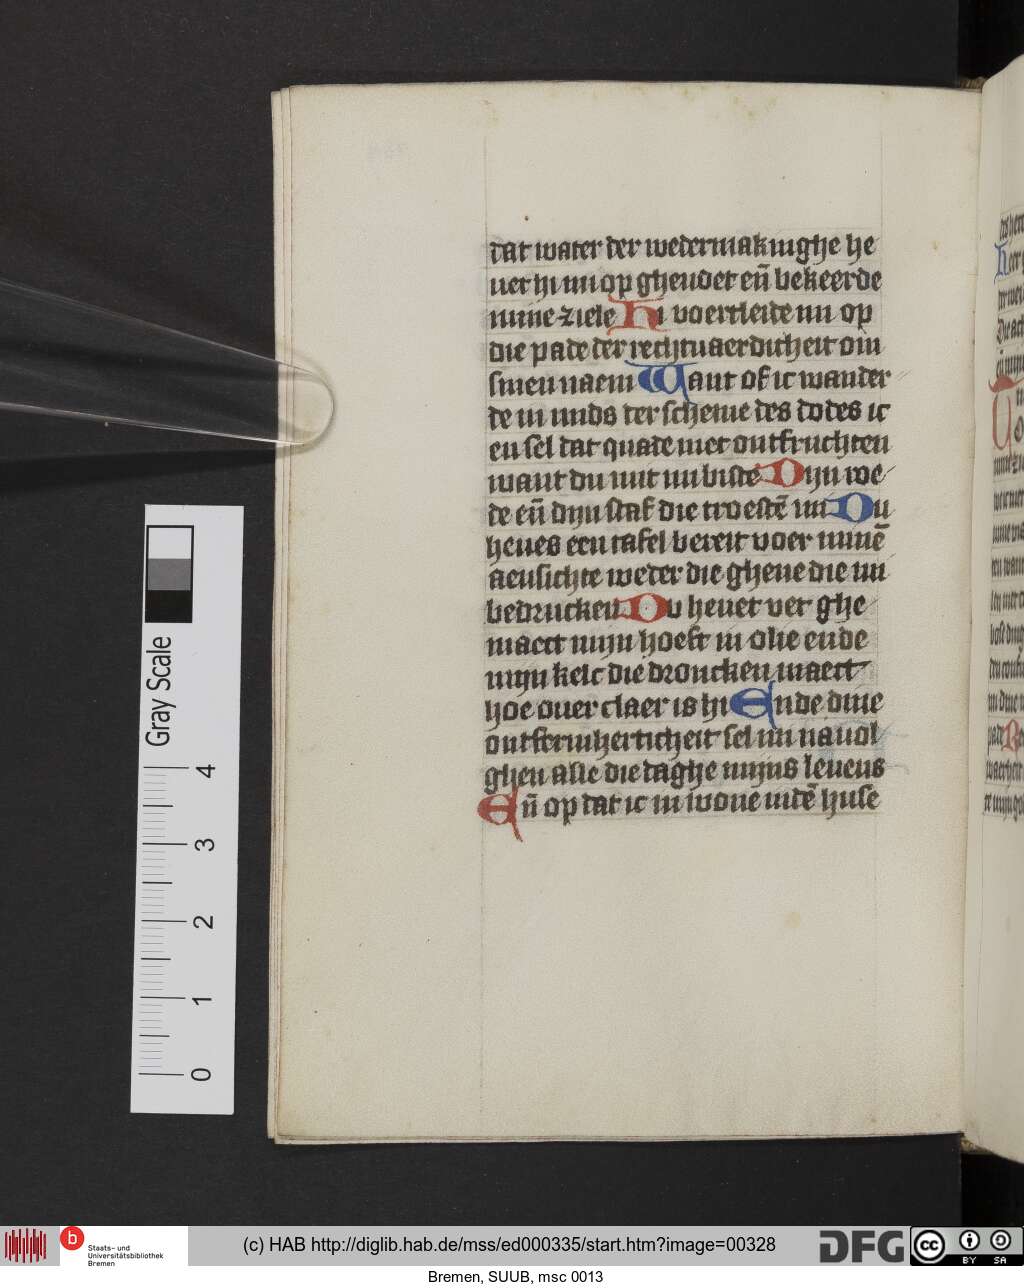 dat water der wedermakinghe he
uet hi mi op gheuoet eñ bekeerde
mine ziele Hi voertleide mi op
die pade der rechtuaerdicheit om
sinen naem Want of ic wander
de in midds der scheme des dodes ic
en sel dat quade niet ontfruchten
want du mit mi biste Dijn roe
de eñ dijn staf die troestē mi Du
heues een tafel bereit voer minē
aensichte weder die ghene die mi
bedrucken Du heuet vet ghe
maect mijn hoeft in olie ende
mijn kelc die droncken maect
hoe ouer claer is hi Ende dine
ontfermherticheit sel mi nauol
ghen alle die daghe mijns leuens
Eñ op dat ic in wone indē huse
Gray Scale
4
3
2
1
0
b
Staats- und
Universitätsbibliothek
Bremen
(c) HAB http://diglib.hab.de/mss/ed000335/start.htm?image=00328
DFG
cc
BY SA
Bremen, SUUB, msc 0013